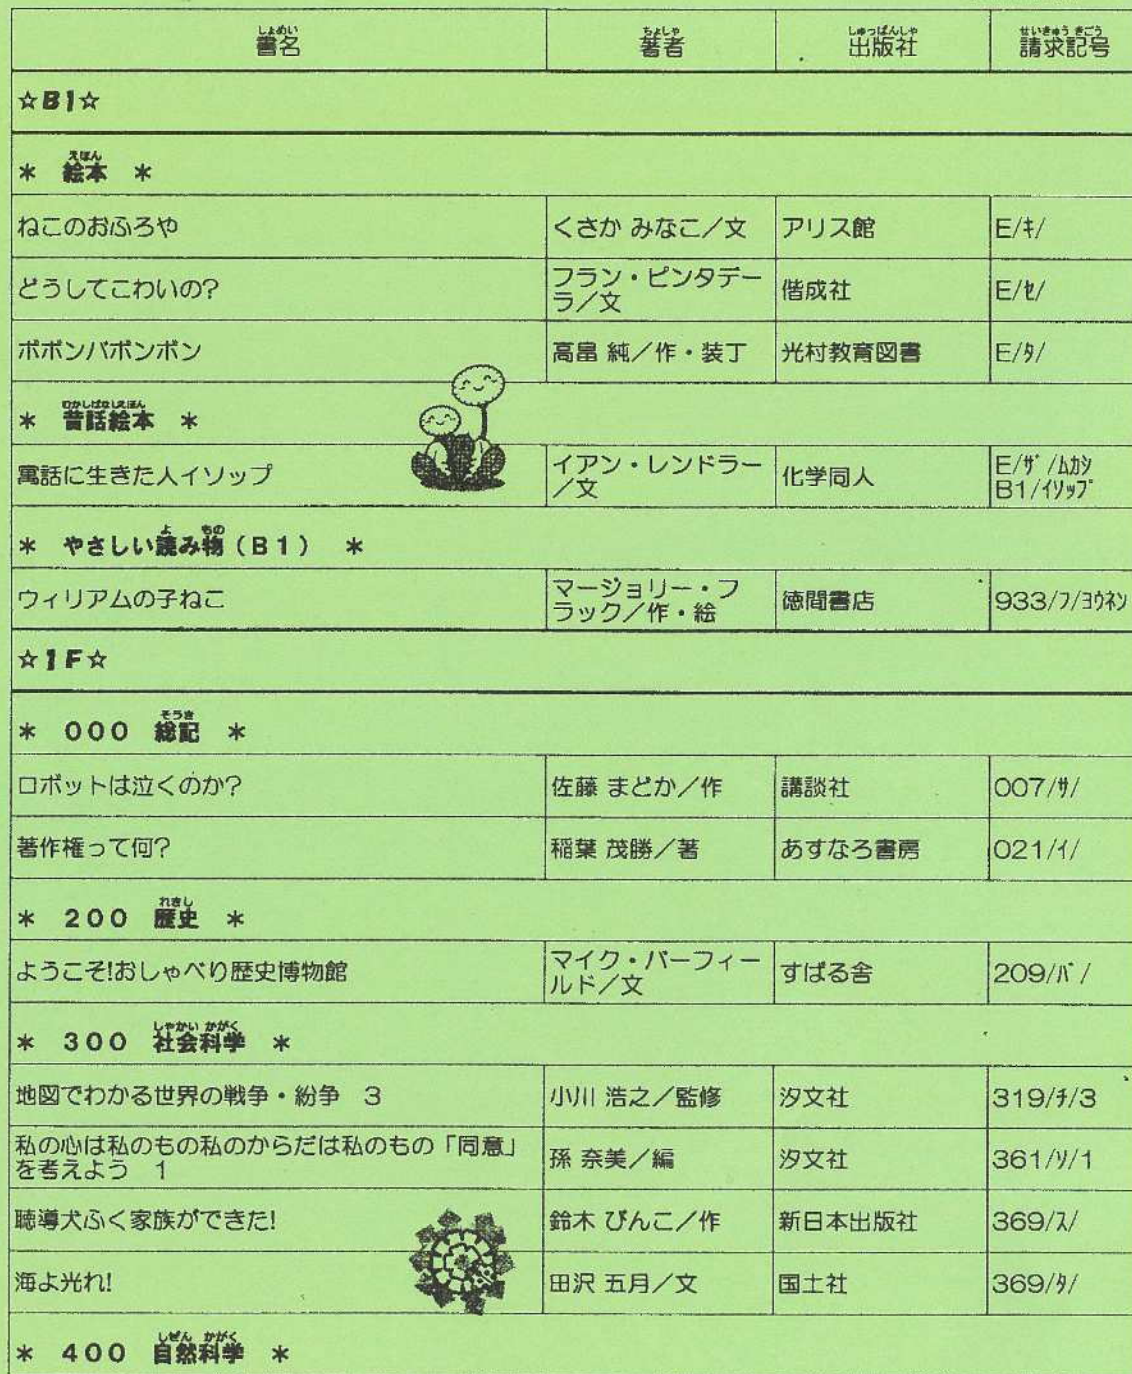 しょめい ちょしゃ しゅっぱんしゃ せいきゅう きごう
書名 著者 出版社 請求記号
☆B1☆
えほん
＊ 絵本 ＊
ねこのおふろや くさか みなこ／文 アリス館 E/ｷ/
どうしてこわいの? フラン・ピンタデーラ／文 偕成社 E/ｾ/
ポポンバポンポン 高畠 純／作・装丁 光村教育図書 E/ﾀ/
むかしばなしえほん
＊ 昔話絵本 ＊
寓話に生きた人イソップ イアン・レンドラー／文 化学同人 E/ｻﾞ/ﾑｶｼ B1/ｲｿｯﾌﾟ
よ もの
＊ やさしい読み物（B1） ＊
ウィリアムの子ねこ マージョリー・フラック／作・絵 徳間書店 933/ﾌ/ﾖｳﾈﾝ
☆1F☆
そうき
＊ 000 総記 ＊
ロボットは泣くのか? 佐藤 まどか／作 講談社 007/ｻ/
著作権って何? 稲葉 茂勝／著 あすなろ書房 021/ｲ/
れきし
＊ 200 歴史 ＊
ようこそ!おしゃべり歴史博物館 マイク・バーフィールド／文 すばる舎 209/ﾊﾞ/
しゃかい かがく
＊ 300 社会科学 ＊
地図でわかる世界の戦争・紛争 3 小川 浩之／監修 汐文社 319/ﾁ/3
私の心は私のもの私のからだは私のもの「同意」
を考えよう 1 孫 奈美／編 汐文社 361/ｿ/1
聴導犬ふく家族ができた! 鈴木 びんこ／作 新日本出版社 369/ｽ/
海よ光れ! 田沢 五月／文 国土社 369/ﾀ/
しぜん かがく
＊ 400 自然科学 ＊